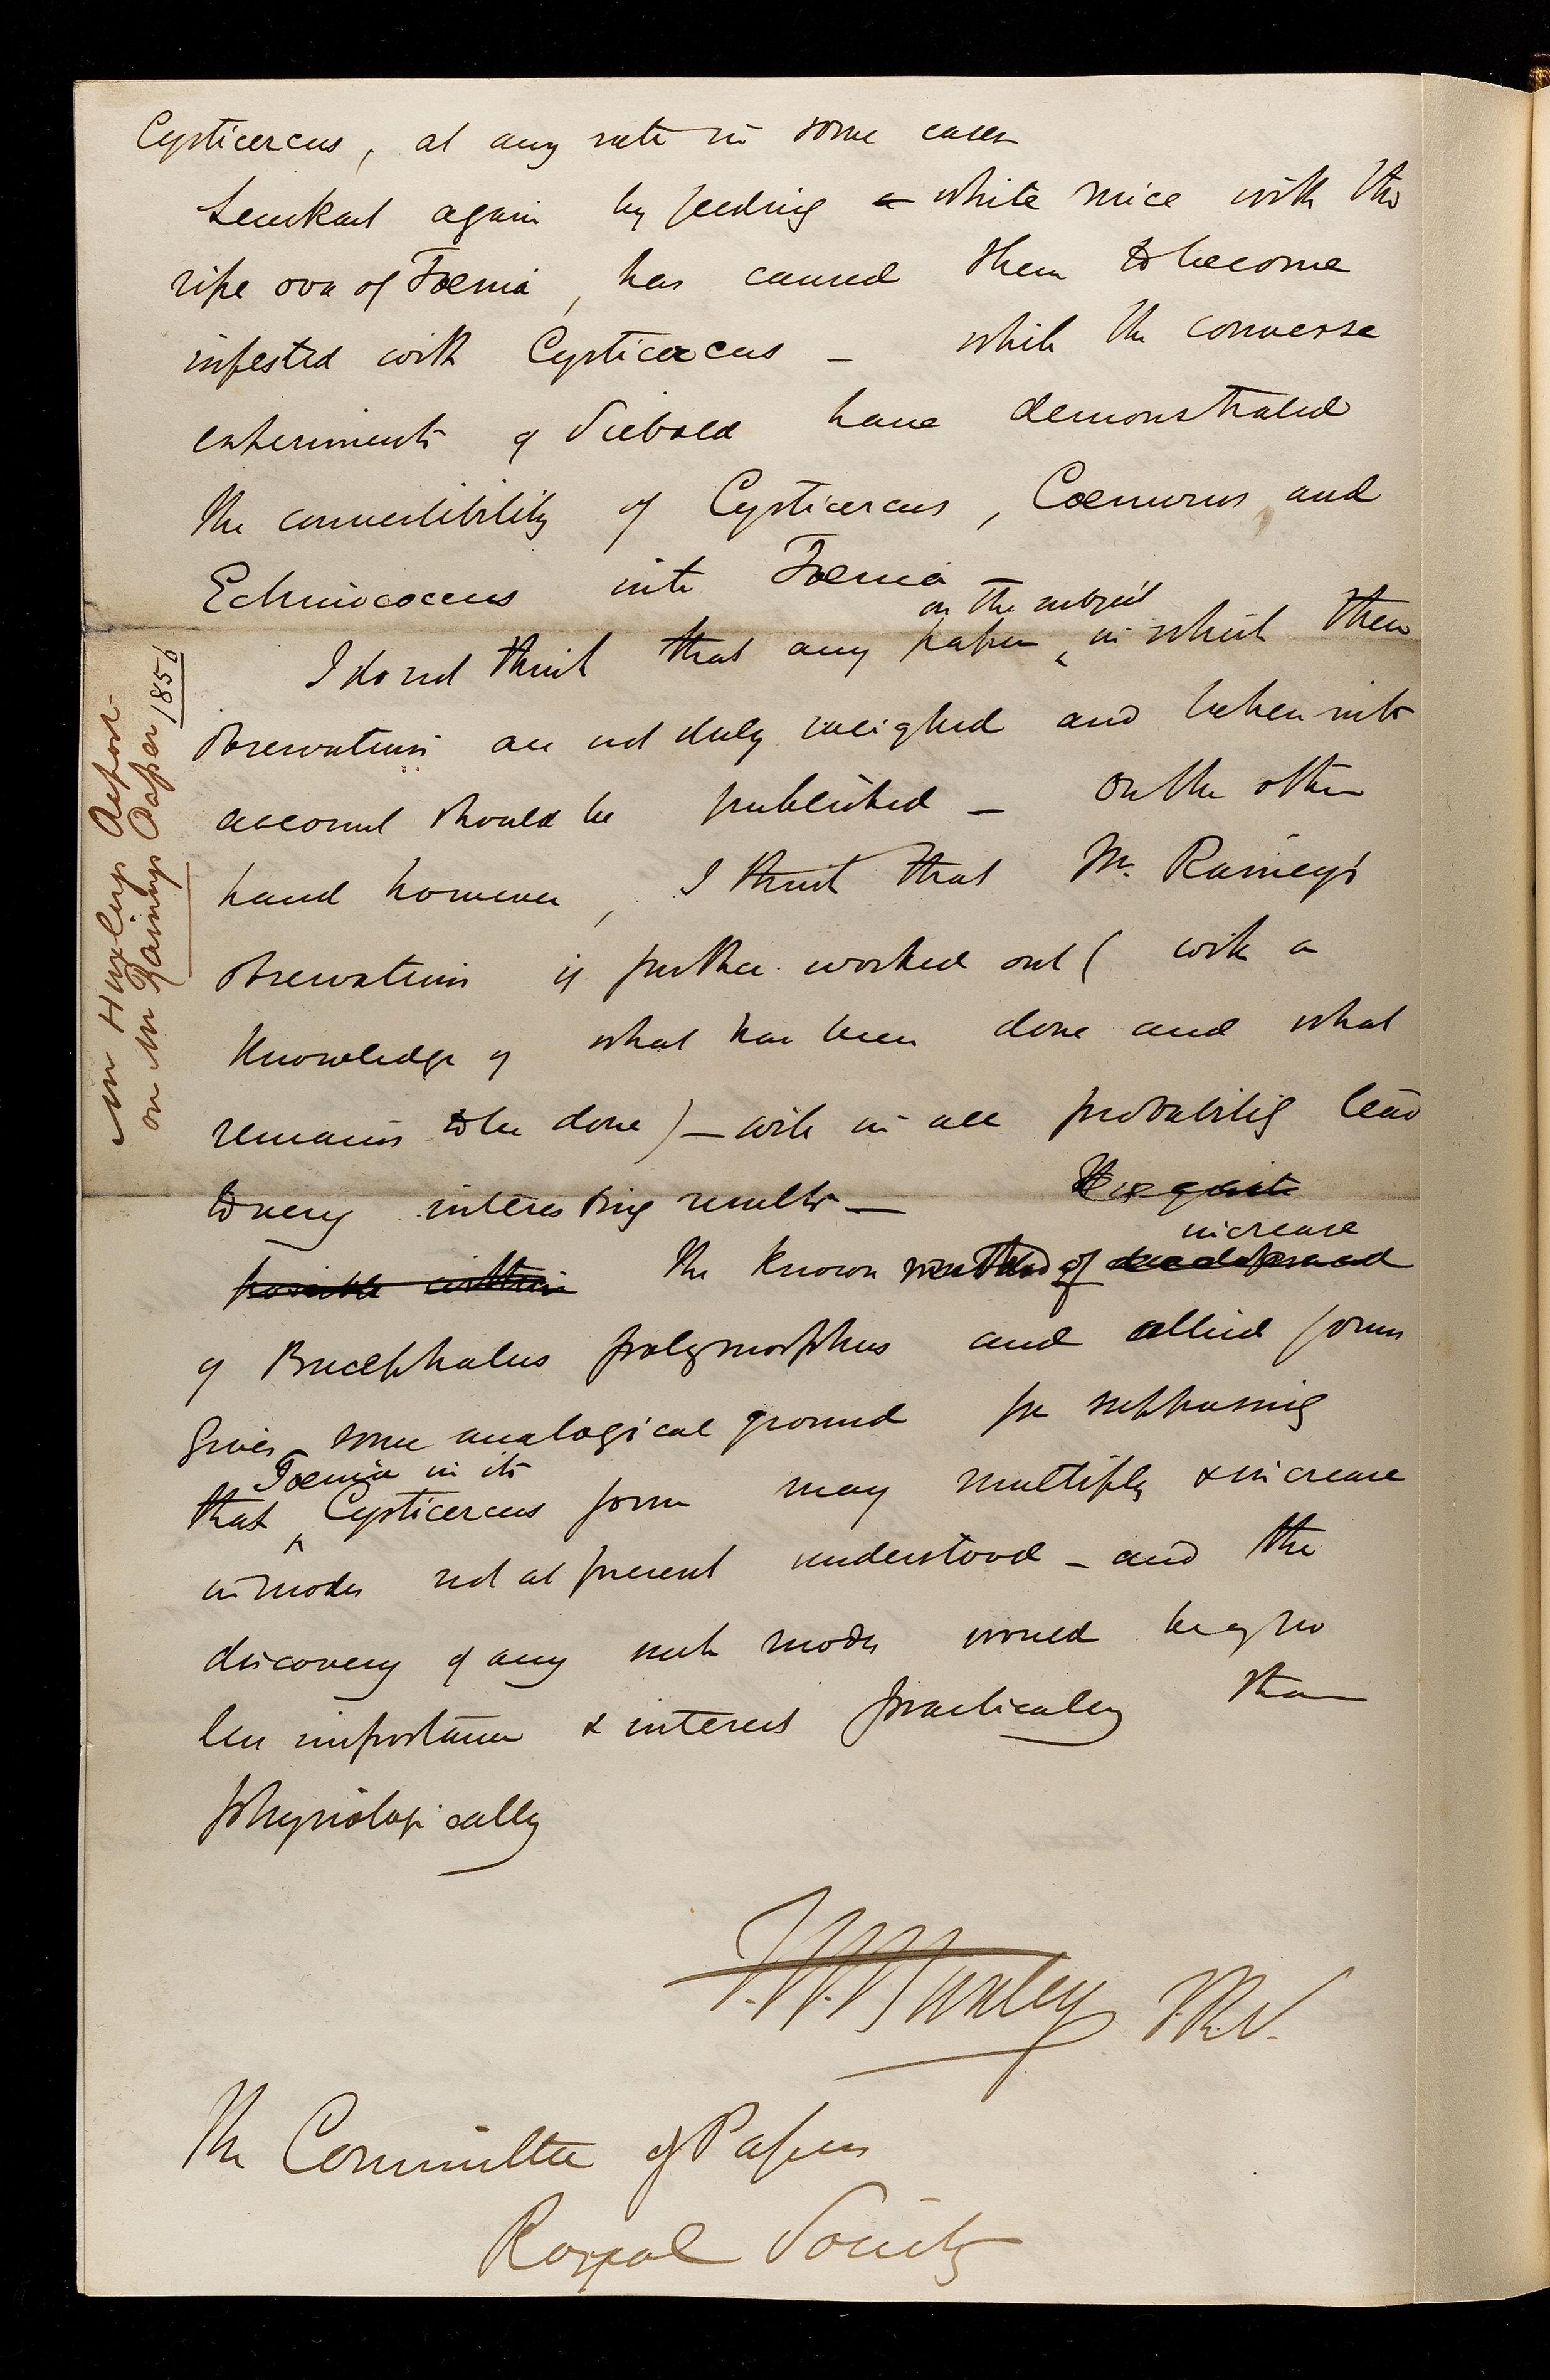 Cysticercus, at any rate in some cases
Leuckart again by feeding a white mice with the
ripe ova of Tænia, has caused them to become
infested with Cysticercus – while the converse
experiments of Siebold have demonstrated
the convertibility of Cysticercus, Cœnurus and
Echinococcus into Tænia
on the subject
I do not think that any paper ‸ in which these
observations are not duly weighed and taken into
account should be published – on the other
hand however, I think that Mr. Rainey's
observations if further worked out (with a
knowledge of what has been done and what
remains to be done) – will in all probability lead
to very interesting results – It is quite
increase
possible within The known method of development
of Bucephalus polymorphus and allied forms
gives some analogical ground for supposing
Tænia in its
that ‸ Cysticercus form may multiply & increase
in modes not at present understood – and the
discovery of any such modes would be of no
less importance & interest practically than
physiologically
T.H. Huxley F.R.S.
The Committee of Papers
Royal Society
Mr Huxleys Report
on Mr Raineys Paper 1856